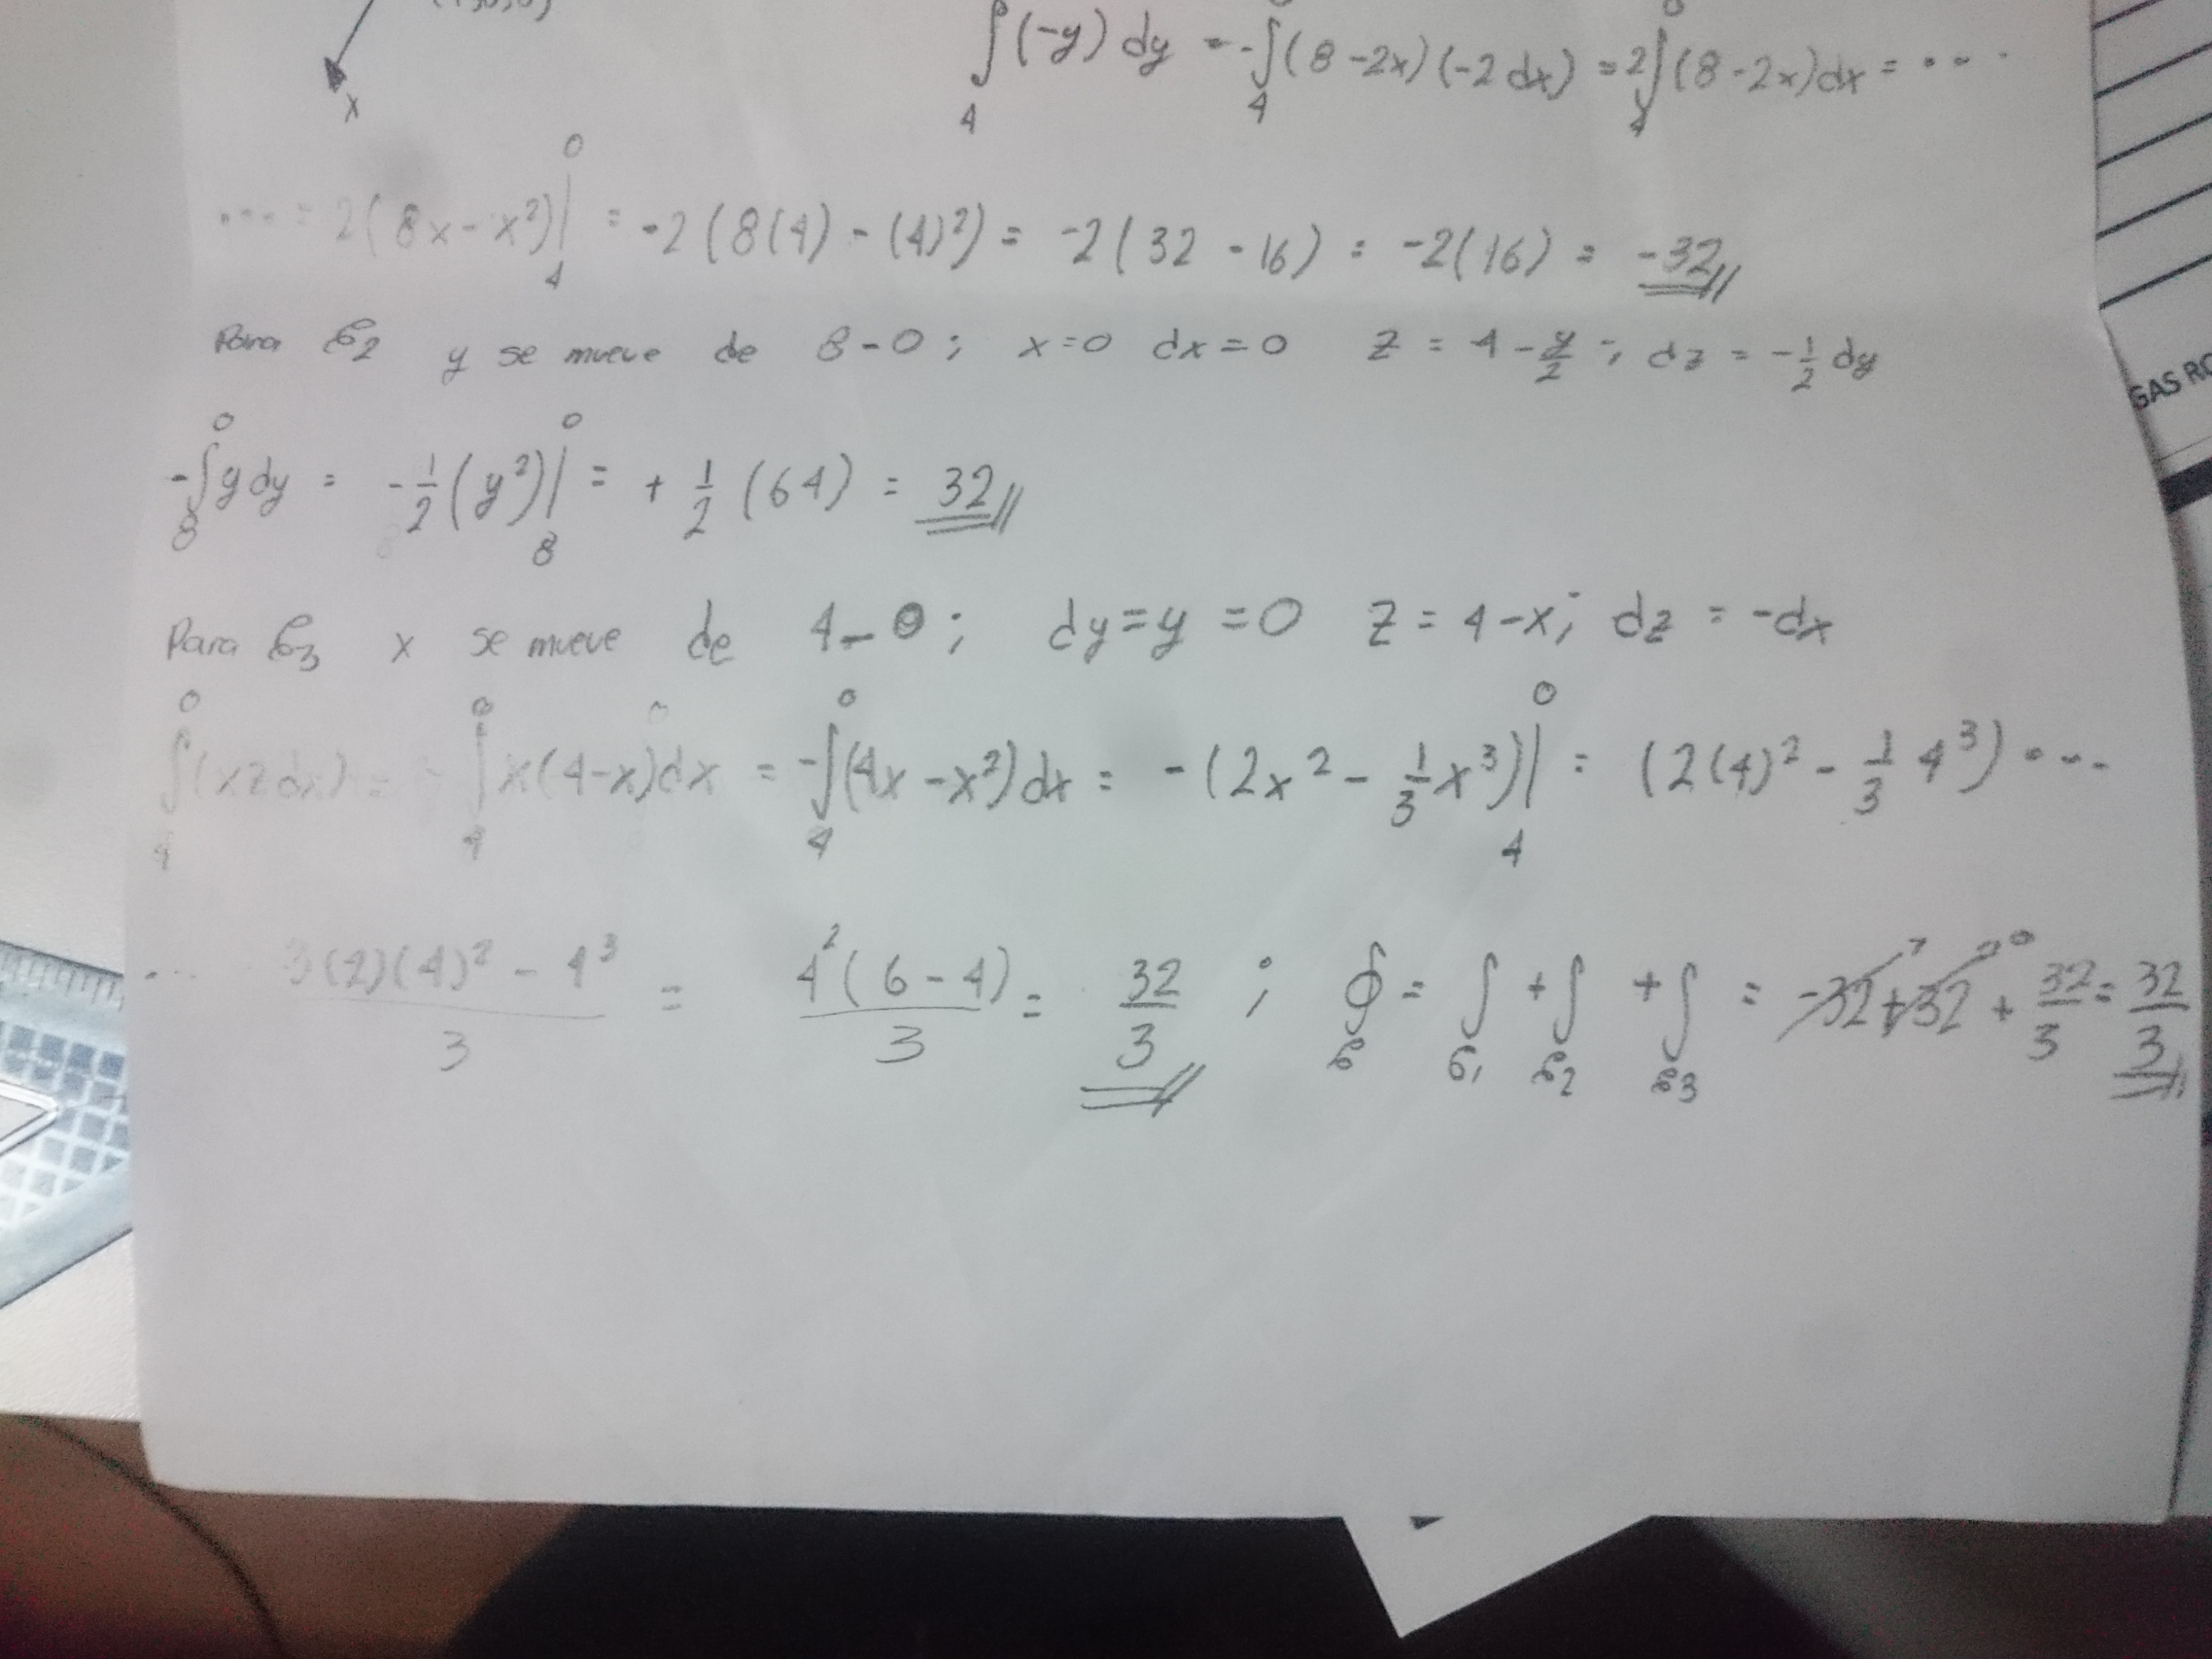 ∫₄⁰ (-y) dy = -∫₄⁰ (8-2x)(-2dx) = 2∫₄⁰ (8-2x)dx = ...
x
... = 2(8x-x²)|₄⁰ = -2(8(4)-(4)²) = -2(32-16) = -2(16) = -32//
Para C₂ y se mueve de 8-0; x=0 dx=0 z=4-y/2; dz=-1/2 dy
-∫₈⁰ y dy = -1/2(y²)|₈⁰ = +1/2(64) = 32//
Para C₃ x se mueve de 4-0; dy=y=0 z=4-x; dz=-dx
∫₄⁰ (xzdx) = -∫₄⁰ x(4-x)dx = -∫₄⁰ (4x-x²)dx = -(2x²-1/3x³)|₄⁰ = (2(4)²-1/3 4³) ...
... 3(2)(4)²-4³/3 = 4²(6-4)/3 = 32/3//; ∮C = ∫C₁ + ∫C₂ + ∫C₃ = -32+32 + 32/3 = 32/3//
GAS RO